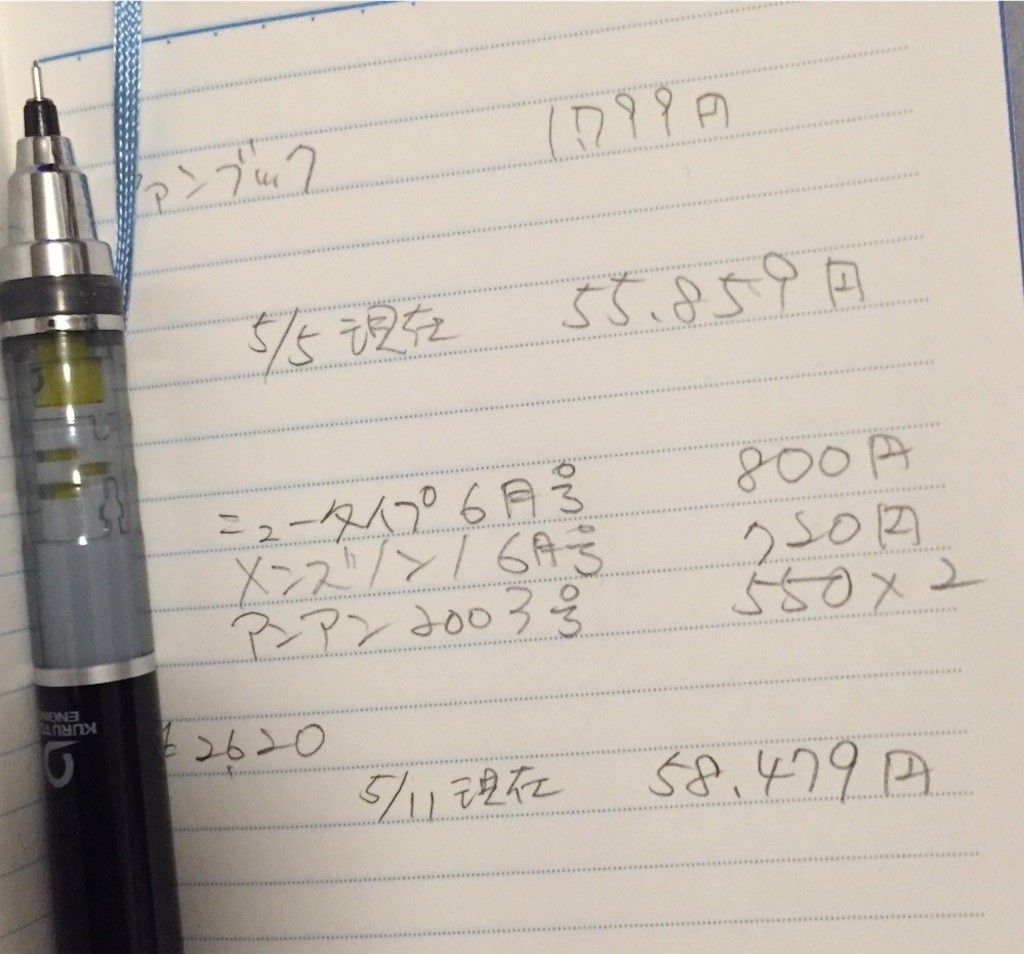 ァンブック 1,799円
5/5 現在 55.859円
ニュータイプ 6月号 800円
メンズノン 6月号 720円
アンアン 2003号 550×2
2,620
5/11 現在 58.479円
KURU TO
ENGIN